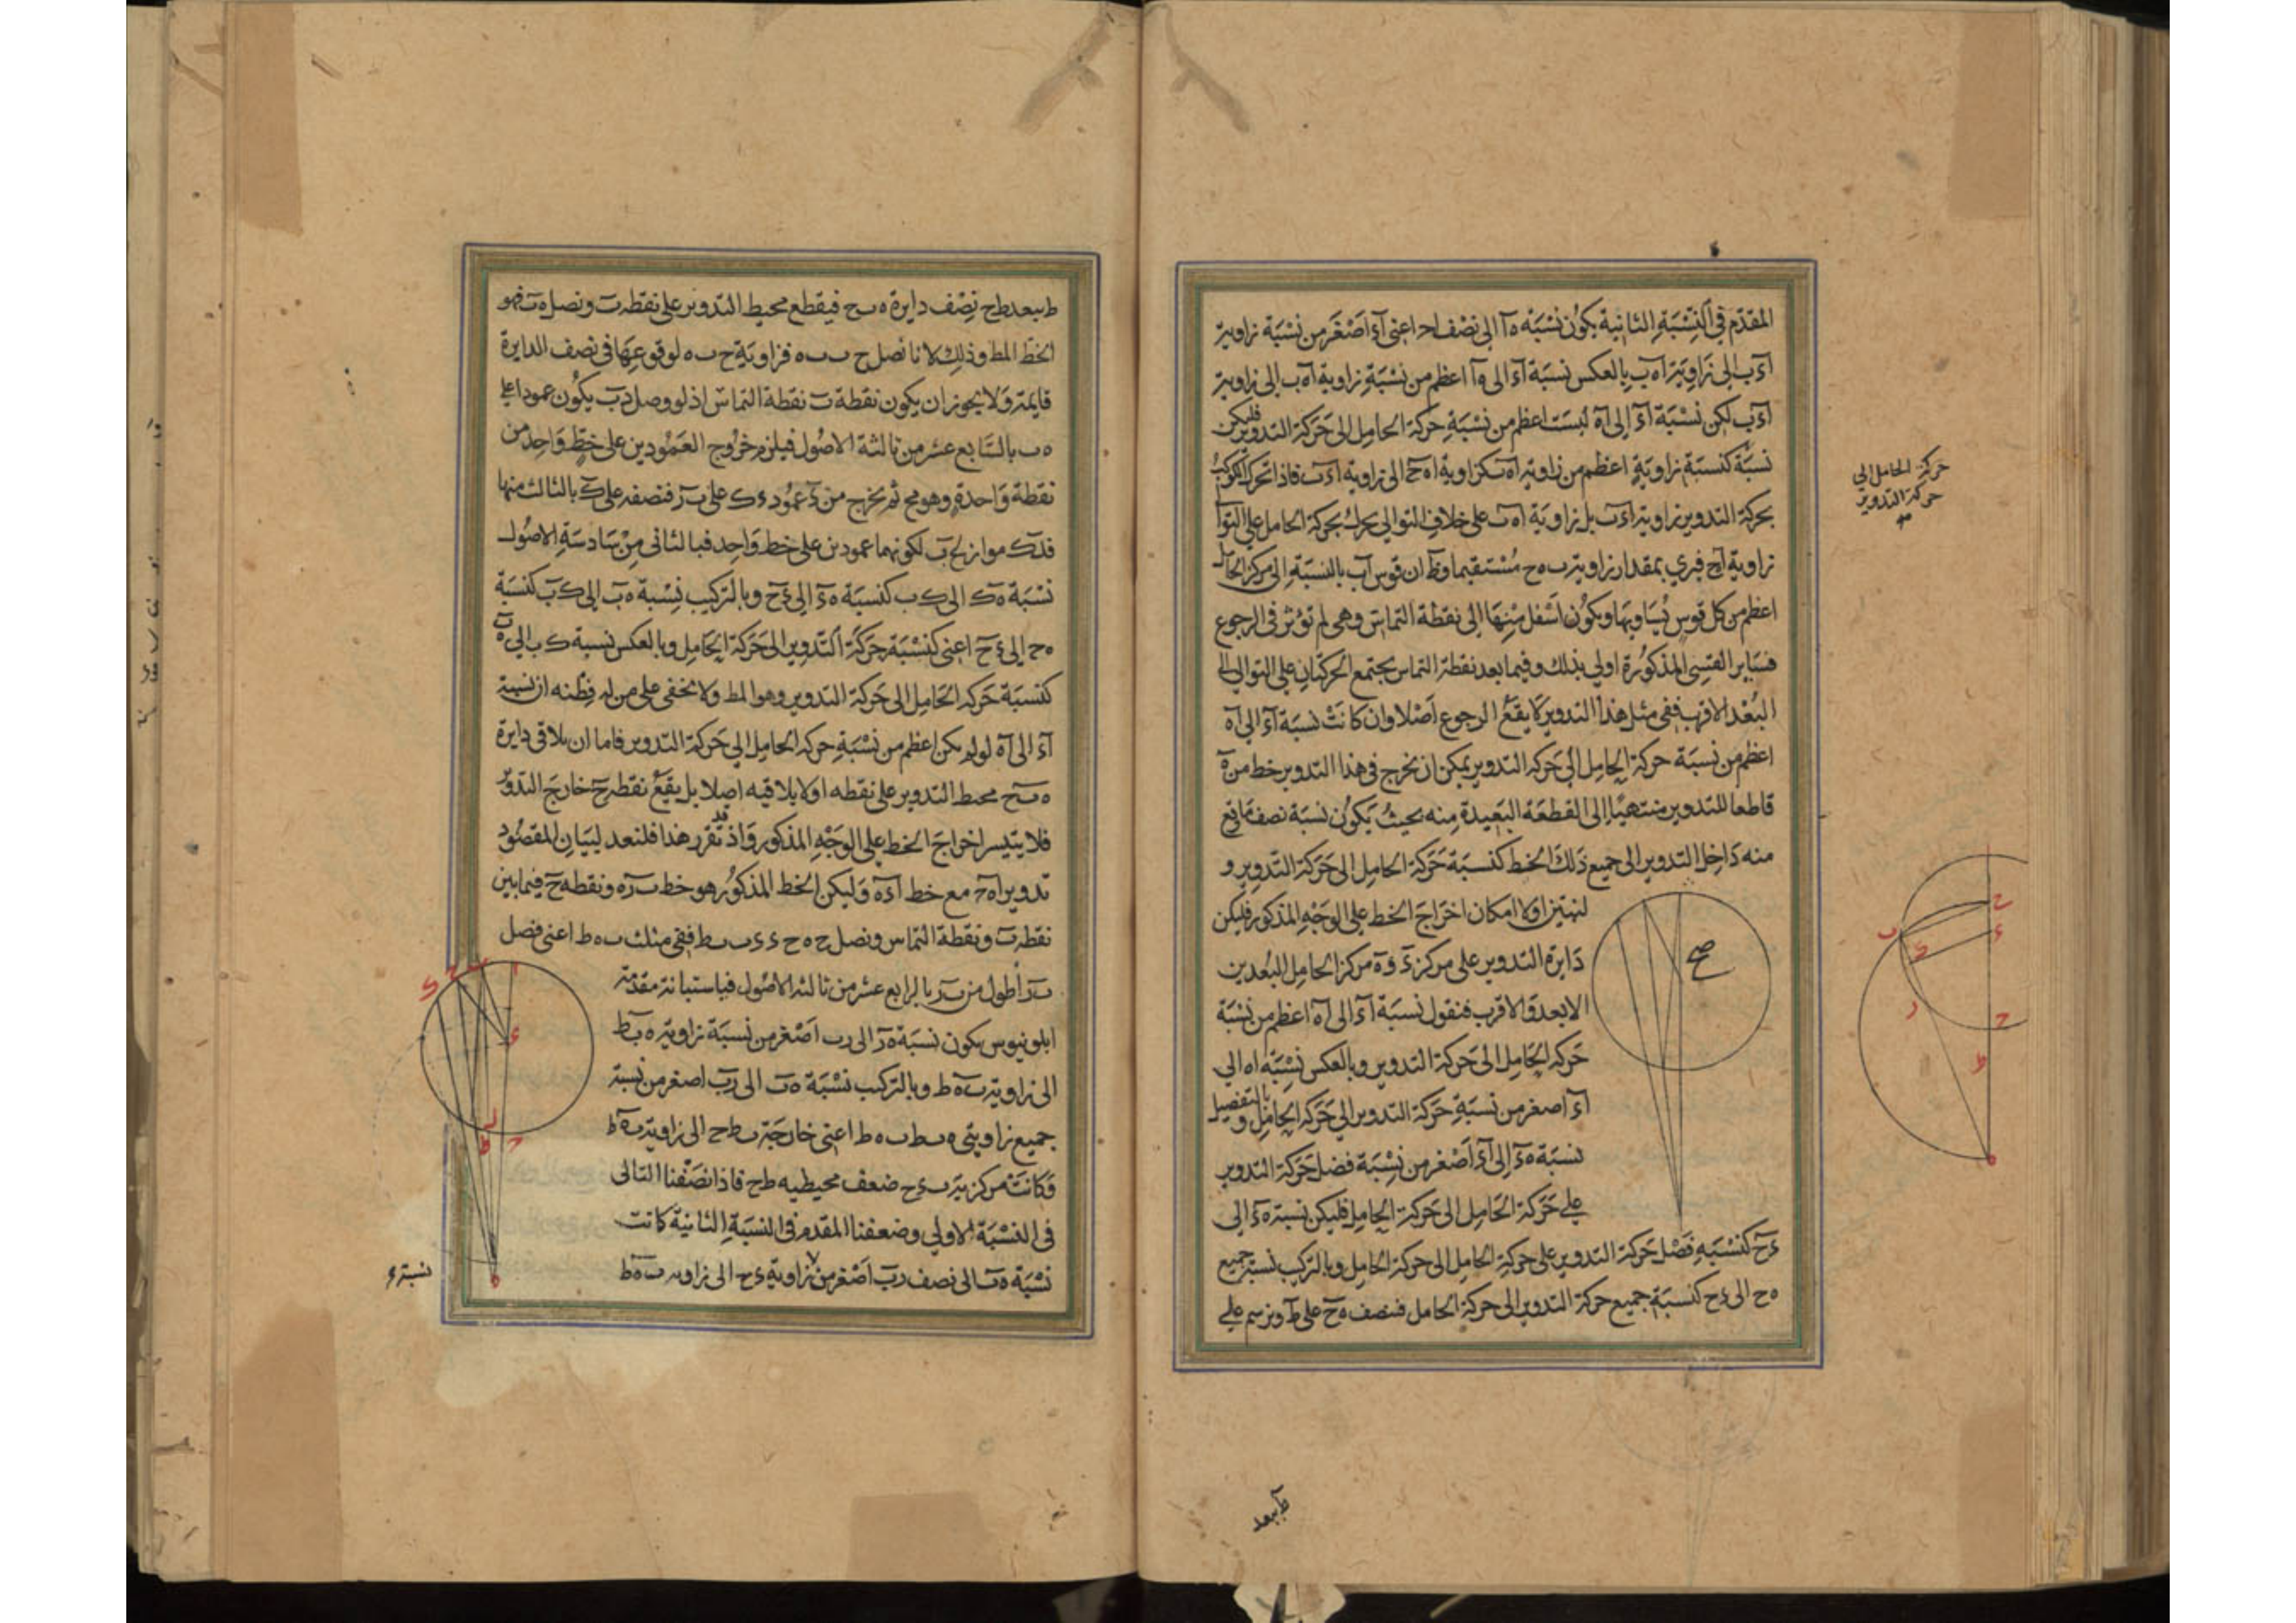 المقدّم في النسْبَةِ الثانية يكوُن نسْبَة ه‍آ الى نصْف اح اعنى آءَ اَصْغَر من نسْبَة زاوية
آءَب الى زَاوِيَة آه‍ب بالعكس نسبَة آءَ الى ه‍آ اعظم من نسْبَةِ زاوية آه‍ب الى زاوية
آءَب لكن نسْبَة آءَ إلى آه‍ ليسَت اعظم من نسْبَةِ حَركة الحامِل الى حَركة التدوير فليكن
نسبَتُه كنسبَة زاويَةٍ اعظم من زاوية آه‍ب كزاوية اه‍ح الى زاوية اءب فاذا تحرك الكوكبُ
بحركة التدوير زاوية اءَب بل زاويَة اه‍ب على خلافِ التوالي يحرك بحركة الحامل على التوالي
زاوية آه‍ح فيرى بمقدار زاوية ب ه‍ ح مُستقيما وظ ان قوس آب بالنسبَةِ الى مركز الحامل
اعظم من كل قوسٍ يُساويهَا ويكوُن اسْفل مِنْهَا الى نقطة التماس وهى لم تؤثر فى الرجوع
فسَاير القسِى المذكوُرة اولى بذلك وفيما بعد نقطة التماس يجتمع الحركتان على التوالي الى
البُعْد الاقرب ففى مثل هَذا التدوير لا يقَعُ الرجوع اَصْلا وان كانَتْ نسبَة آءَ الى آه‍
اعظم من نسبَة حركة الحامِل الى حَركة التدوير يمكن ان يخرج فى هذا التدوير خط من ه‍
قاطعا للتدوير منتهيًا الى القطعَة البَعيدة مِنه بحيثُ يَكوُن نسبَة نصف ما وقع
منه دَاخِل التدوير الى جميع ذلكَ الخط كنسبَة حَركة الحامِل الى حَركة التدوير و
لنبيّن اولا امكان اخرَاج الخط على الوجْهِ المذكور فليكن
دَايرة التدوير على مركز ءَ و ه‍ مركز الحامِل البُعدين
الابعد وَالاقرب فنقول نسبَة آءَ الى آه‍ اعظم من نسْبَة
حَركة الحَامل الى حَركة التدوير وبالعكس نسْبَة اه‍ الى
آءَ اصغر من نسْبَةِ حَركة التدوير الى حَركة الحامِل وبالتفصيل
نسبَة ه‍ءَ إلى آءَ اَصْغر من نسْبَة فضل حَركة التدوير
على حَركة الحَامل الى حَركة الحامِل فليكن نسبة ه‍ءَ الى
ءح كنسْبَة فَضْل حَركة التدوير على حركة الحامل الى حركة الحامل وبالتركيب نسبَة جميع
ه‍ ح الى ء ح كنسبَة جميع حركة التدوير الى حركة الحامل فننصف ه‍ ح على ط ونرسم على
حركة الحامل الى
حركة التدوير
صح
ح
ء
ب
ك
ر
ح
ط
ه‍
صح
ط ببعد
ط ببعد ط ح نصْف دايرة ه‍ ب ح فيقطع محيط التدوير على نقطة ب ونصل ه‍ ب فهو
الخطّ المط وذلك لانا نصل ح ب ب ه‍ فزاويَة ح ب ه‍ لوقوعِهَا فى نصف الدايرة
قايمة وَلا يجوز ان يكون نقطة ب نقطة التماسّ اذ لو وصل ءب يكُون عمودا على
ه‍ ب بالسَّابع عشر من ثالثة الاصُول فيلزم خرُوج العَمُودين على خطٍّ وَاحِد من
نقطة وَاحدةٍ وهو مح ثم يخرج من ءَ عمُود ء ك على ب ر فننصفه على ك بالثالث منها
فءك مواز لح ب لكونهما عمودين على خط وَاحِد فبالثانى مِنْ سَادسَةِ الاصُول
نسْبَة ه‍ ك الى ك ب كنسبَة ه‍ ءَ الى ءح وبالتركيب نِسْبة ه‍ب الى ك ب كنسْبَة
ه‍ ح الى ء ح اعنى كنسْبَة حَركَة التدوير الى حَركة الحَامِل وبالعكس نسبة ك ب الى ه‍ب
كنسبَة حَركة الحَامل الى حَركة التدوير وهو المط ولا يخفى على من له فِطْنه ان نسبة
آءَ الى آه‍ لو لم يكن اعظم من نسْبَةِ حركة الحامل الى حَركة التدوير فاما ان يلاقى دايرة
ه‍ ب ح محيط التدوير على نقطه او لا يلاقيه اصلا بل يقَعُ نقطة ح خارجَ التدوير
فلا يتيسر اخراج الخط على الوجْهِ المذكور وَاذ قد تقرر هذا فلنعد لبيَانِ المقصُود
تدوير اه‍ح مع خط اءه‍ وَليكن الخط المذكوُر هو خط ب ر ه‍ ونقطة ح فيما بين
نقطة ب ونقطة التماس ونصل ح ه‍ ح ء ء ب ب ط ففى مثلث ب ه‍ ط اعنى فصل
ب ر أطول من ب ر بالرابع عشر من ثالثة الاصُول فباستبانة مقدمة
ابلونيوس يكون نسْبَة ه‍ر الى ر ب اصْغر من نسبَة زاوية ه‍ ب ط
الى زاوية ب ه‍ ط وبالتركيب نسْبَة ه‍ب الى ر ب اصغر من نسبة
جميع زاويتى ه‍ ب ط ب ه‍ ط اعنى خارجَة ب ط ح الى زاوية ب ه‍ ط
وَكانَتْ مركزية ب ء ح ضعف محيطيه ب ط ح فاذا نصّفنا التالى
فى النسْبَة الاولى وضعفنا المقدم فى النسبَةِ الثانية كانت
نسْبَة ه‍ب الى نصف ر ب اَصْغر من زاوية ء ح الى زاوية ب ه‍ ط
ا
ح
ك
ء
ل
ط
ح
ه‍
نسبة